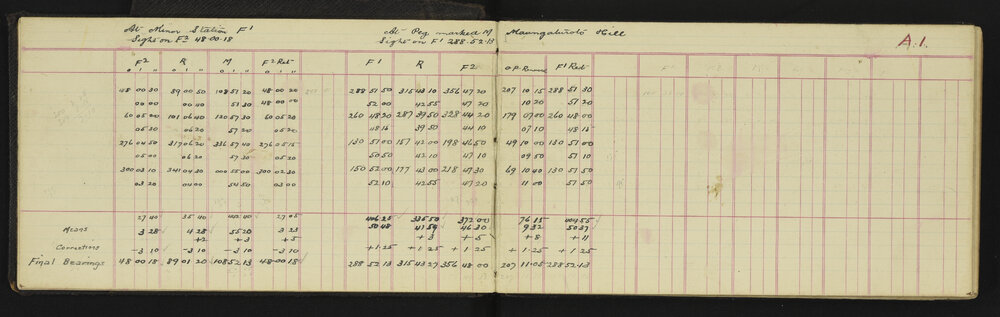 At Minor Station F'   At Peg marked M   Maungatautō Hill
Sight on F2 48.00.18   Sight on F' 288.52.13   A.1.
F2   R   M   F2 Ret   F1   R   F2   F1 Ret
° ' "   ° ' "   ° ' "   ° ' "
48 00 30   89 00 50   108 51 20   48 00 20   288 51 50   315 43 10   356 47 20   207 10 15   288 51 30
00 00   00 40   51 30   48 00 00   52 00   42 55   47 20   10 20   51 20
60 05 00   101 06 40   120 57 30   60 05 20   260 48 20   287 39 50   328 44 20   179 07 00   260 48 00
05 30   06 20   57 20   05 20   48 16   39 50   44 10   07 10   48 15
276 04 50   317 06 20   336 57 40   276 05 15   130 51 00   157 42 00   198 46 50   49 10 00   130 51 00
05 00   06 20   57 30   05 20   50 50   42 10   47 10   09 50   51 10
300 03 10   341 04 30   000 55 00   300 02 30   150 52 00   177 43 00   218 47 30   69 10 40   130 51 50
03 20   04 00   54 50   03 00   52 10   42 55   47 20   11 00   51 50
27 40   35 40   27 05   406 25   335 50   372 00   76 15   404 55
Means   3 28   4 28   55 20   3 23   50 48   41 59   46 30   9 32   50 37
+2   +3   +5   +3   +5   +8   +11
Corrections   -3 10   -3 10   -3 10   -3 10   +1 25   +1 25   +1 25   +1 25   +1 25
Final Bearings   48 00 18   89 01 20   108 52 13   48 00 18   288 52 13   315 43 27   356 48 00   207 11 05   288 52 13